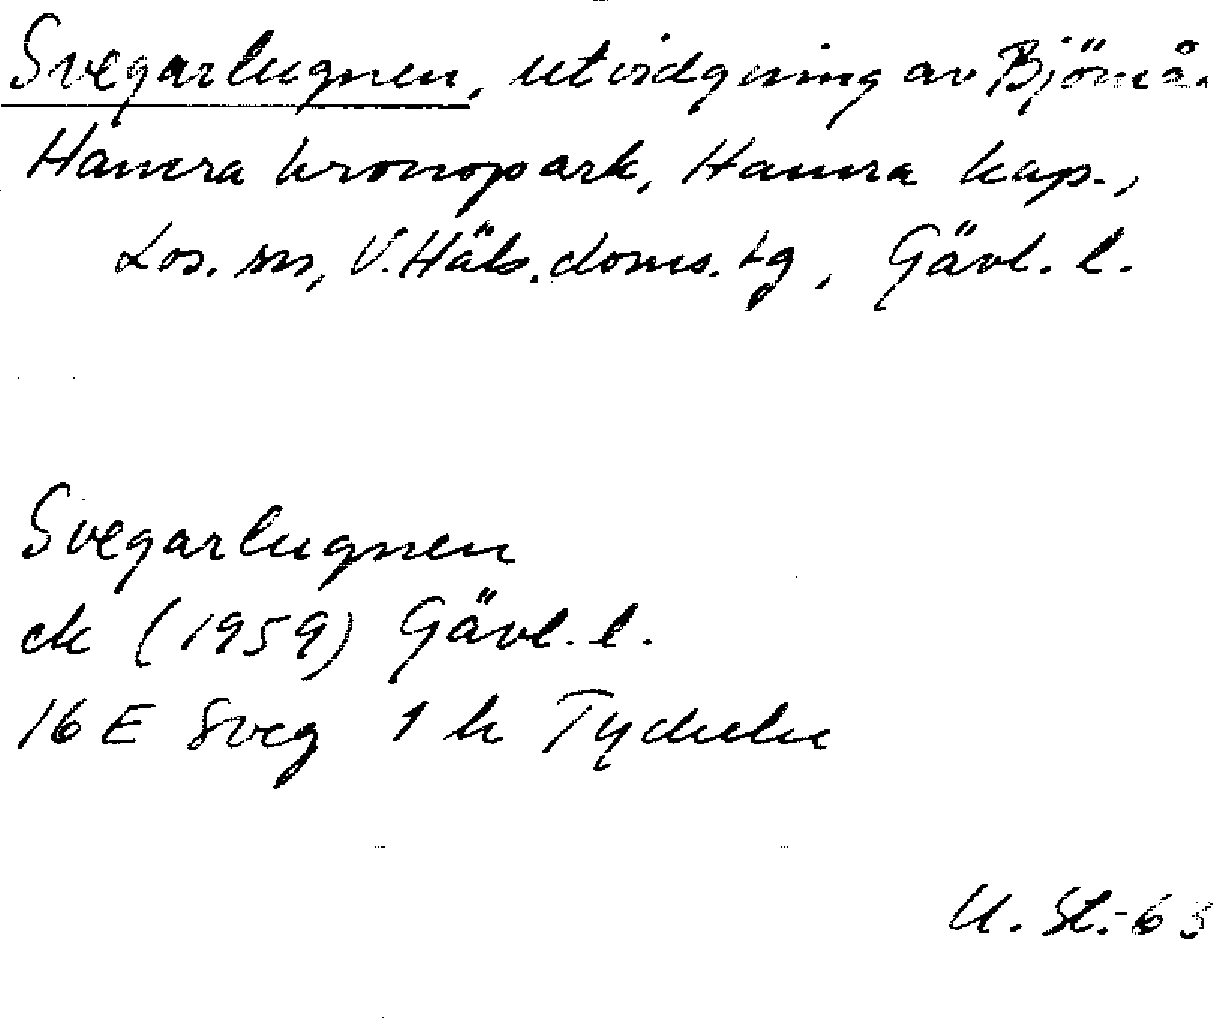 Svegarlugnen, utvidgning av Björnå.
Hamra kronopark, Hamra kap.,
Los. sn, V. Häls. doms. tg, Gävl. l.
Svegarlugnen
ek (1959) Gävl. l.
16 E Sveg 1 h
U. St.-63